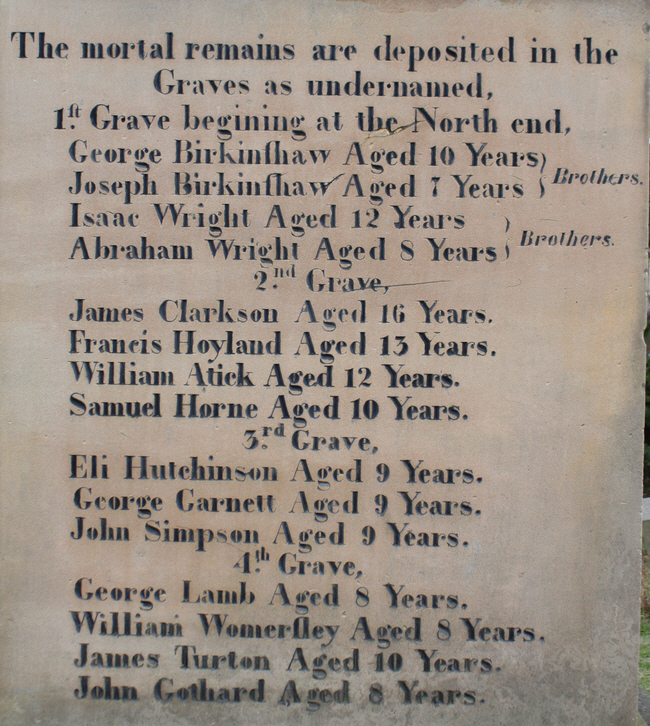 The mortal remains are deposited in the
Graves as undernamed,
1.ſt Grave begining at the North end,
George Birkinſhaw Aged 10 Years
Joseph Birkinſhaw Aged 7 Years } Brothers.
Isaac Wright Aged 12 Years
Abraham Wright Aged 8 Years } Brothers.
2.nd Grave,
James Clarkson Aged 16 Years.
Francis Hoyland Aged 13 Years.
William Atick Aged 12 Years.
Samuel Horne Aged 10 Years.
3.rd Grave,
Eli Hutchinson Aged 9 Years.
George Garnett Aged 9 Years.
John Simpson Aged 9 Years.
4.th Grave,
George Lamb Aged 8 Years.
William Womerſley Aged 8 Years.
James Turton Aged 10 Years.
John Gothard Aged 8 Years.